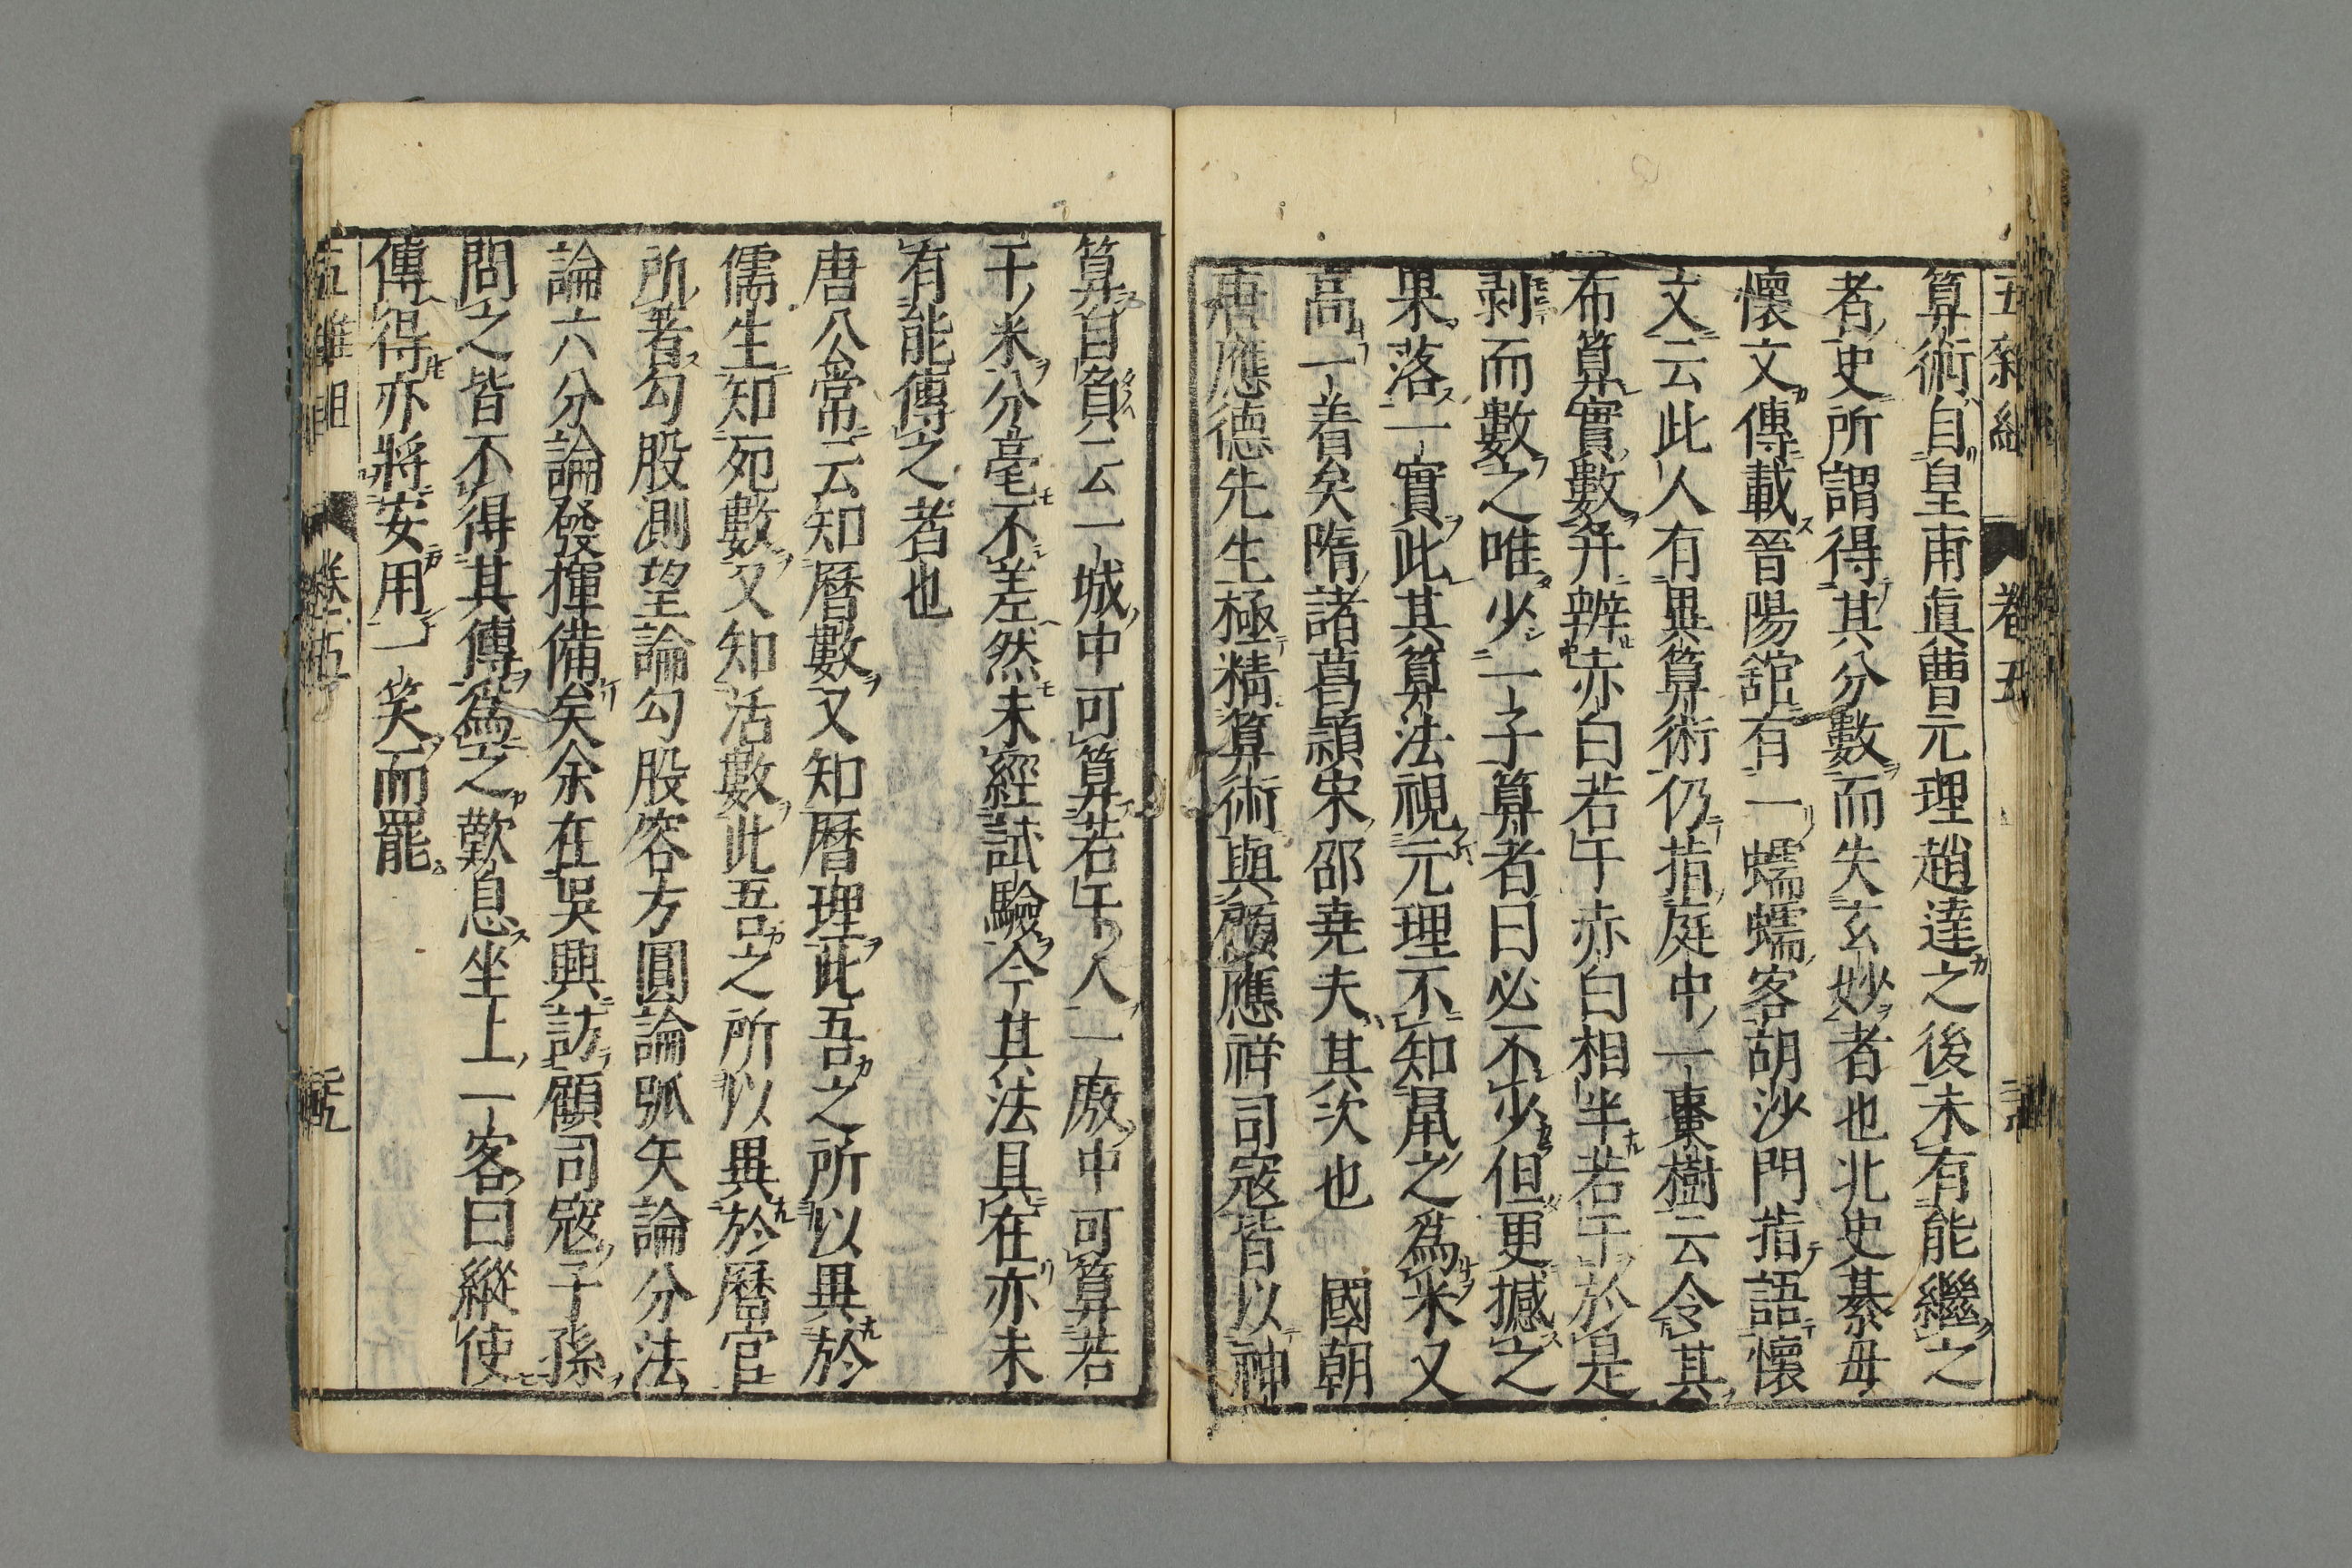 算術自皇甫眞曹元理趙達之後未有能繼之
者史所謂得其分數而失玄妙者也北史綦毋
懷文傳載晉陽舘有一蠕蠕客胡沙門指語懷
文云此人有異算術仍指庭中一棗樹云令其
布算實數并辨赤白若干赤白相半若干於是
剥而數之唯少一子算者曰必不少但更撼之
果落一實此其算法視元理不知鼠之爲米又
高一着矣隋諸葛頴宋邵堯夫其次也　國朝
唐應德先生極精算術與顧應祥司寇皆以神
算自負云一城中可算若干人一廒中可算若
干米分毫不差然未經試驗今其法具在亦未
有能傳之者也
唐公嘗云知曆數又知曆理此吾之所以異於
儒生知死數又知活數此吾之所以異於曆官
所著勾股測望論勾股容方圓論弧矢論分法
論六分論發揮備矣余在吳興訪顧司寇子孫
問之皆不得其傳爲之歎息坐上一客曰縱使
傳得亦將安用一笑而罷
五雜組　卷五